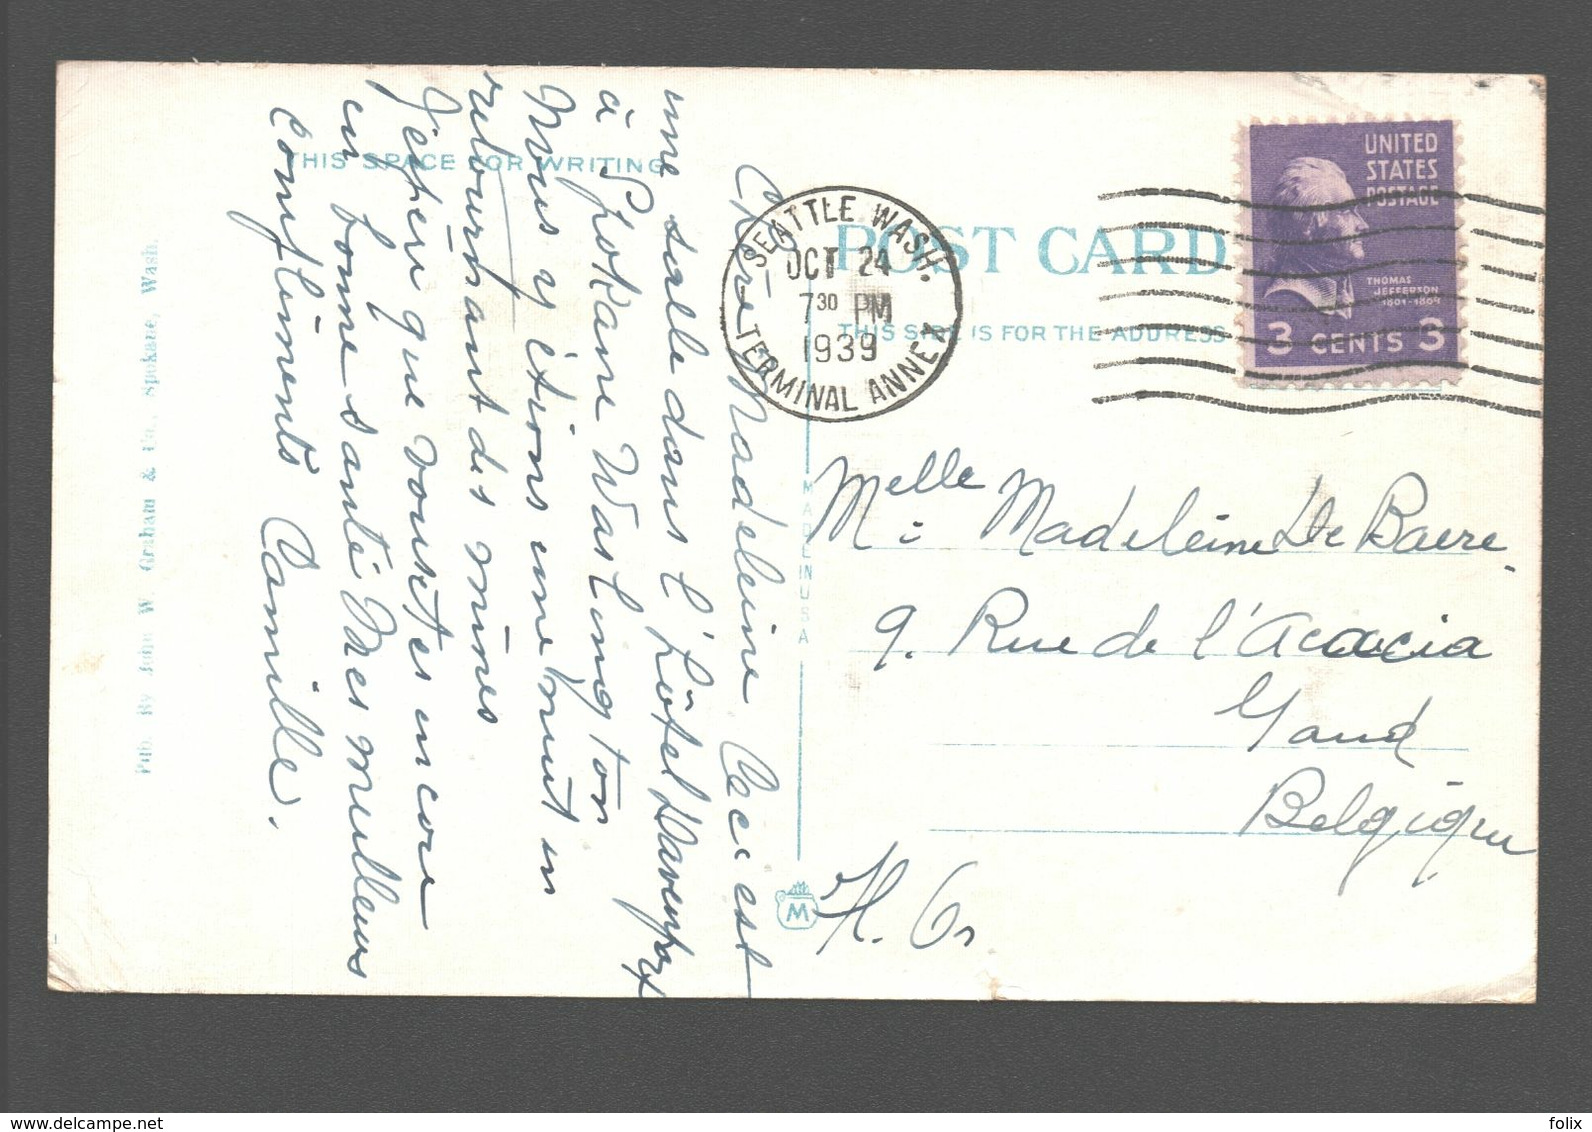 Chère Madeleine Ceci est
une salle dans l'hôtel Davenport
à Spokane Washington
Nous y étions une nuit en
retournant des mines
J'espère que vous êtes encore
en bonne santé Mes meilleurs
compliments Camille.
THIS SPACE FOR WRITING
Pub. By John W. Graham & Co., Spokane, Wash.
MADE IN USA
M
SEATTLE WASH.
OCT 24
7 30 PM
1939
TERMINAL ANNEX
POST CARD
THIS SIDE IS FOR THE ADDRESS
UNITED
STATES
POSTAGE
THOMAS
JEFFERSON
1801-1809
3 CENTS 3
Melle Madeleine De Baere
9. Rue de l'Acacia
Gand
Belgique
felix